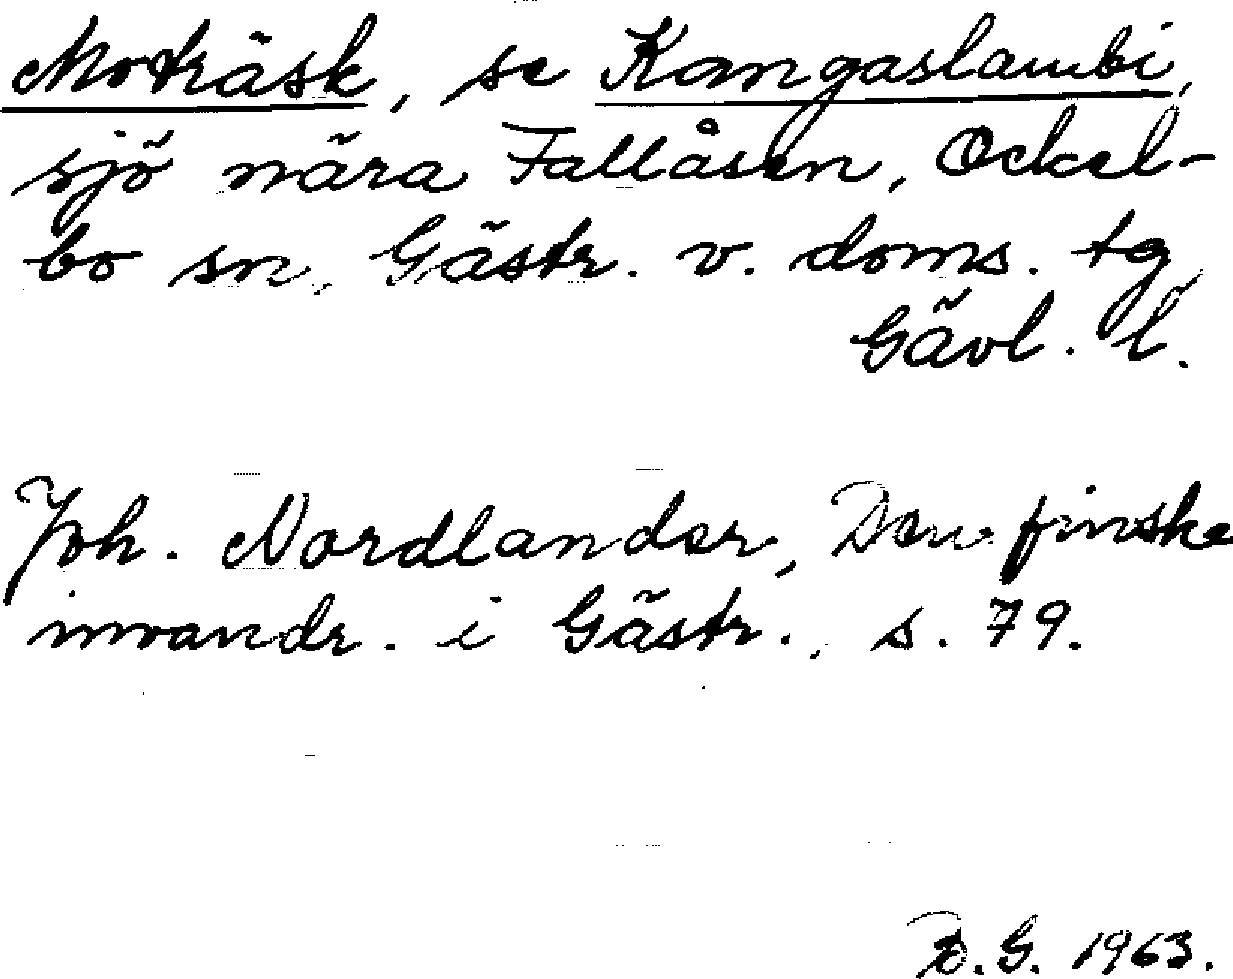 Moträsk, se Kangaslambi,
sjö nära Fallåsen, Ockel-
bo sn, Gästr. v. doms. tg
Gävl. l.
Joh. Nordlander, Den finske
invandr. i Gästr., s. 79.
D.G. 1963.